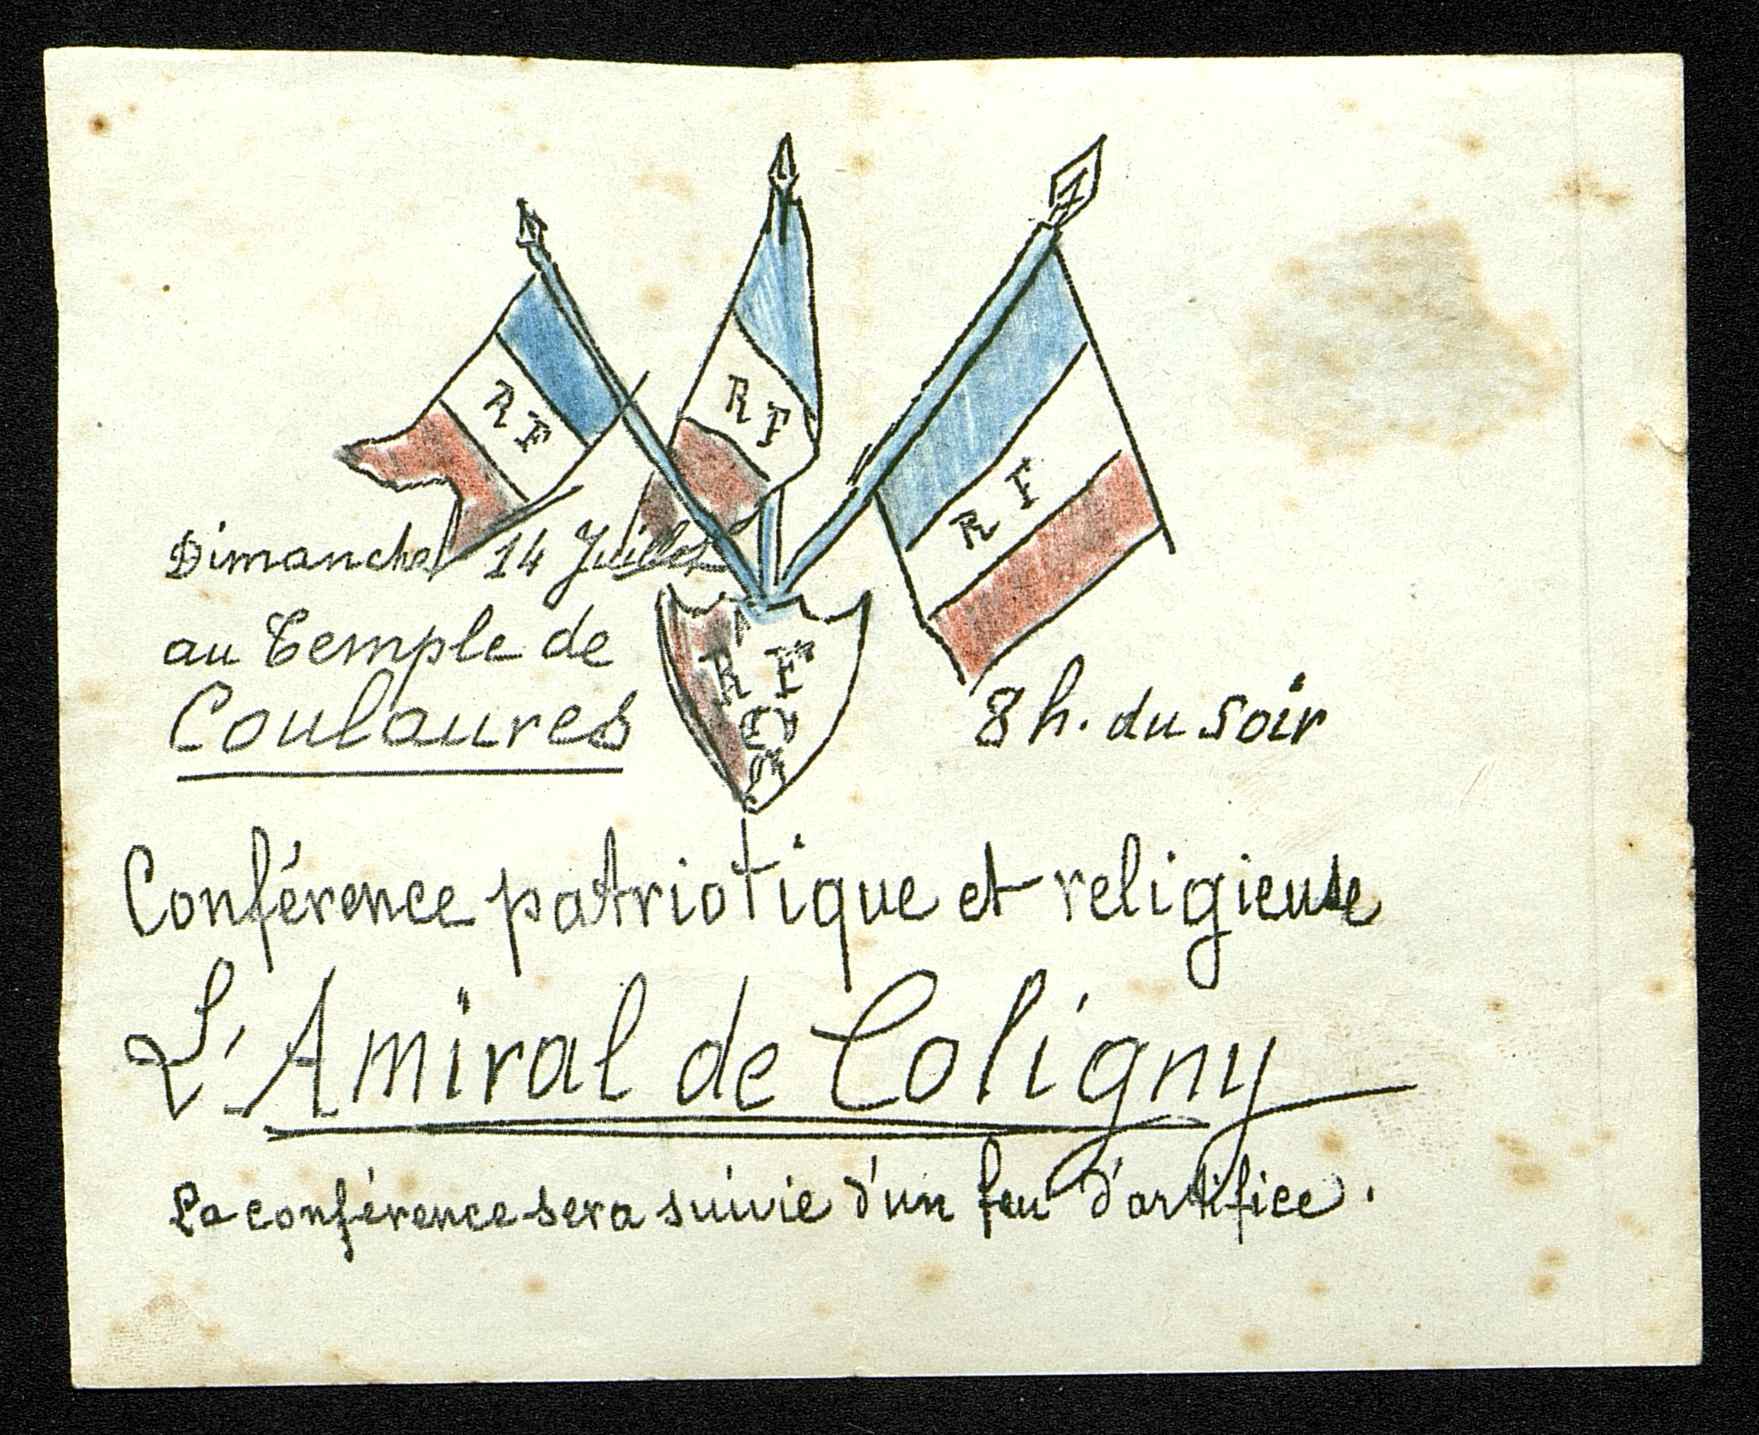 R F
R F
R F
R F
Dimanche 14 Juillet
au Temple de
Coulaures
8 h. du soir
Conférence patriotique et religieuse
L'Amiral de Coligny
La conférence sera suivie d'un feu d'artifice.